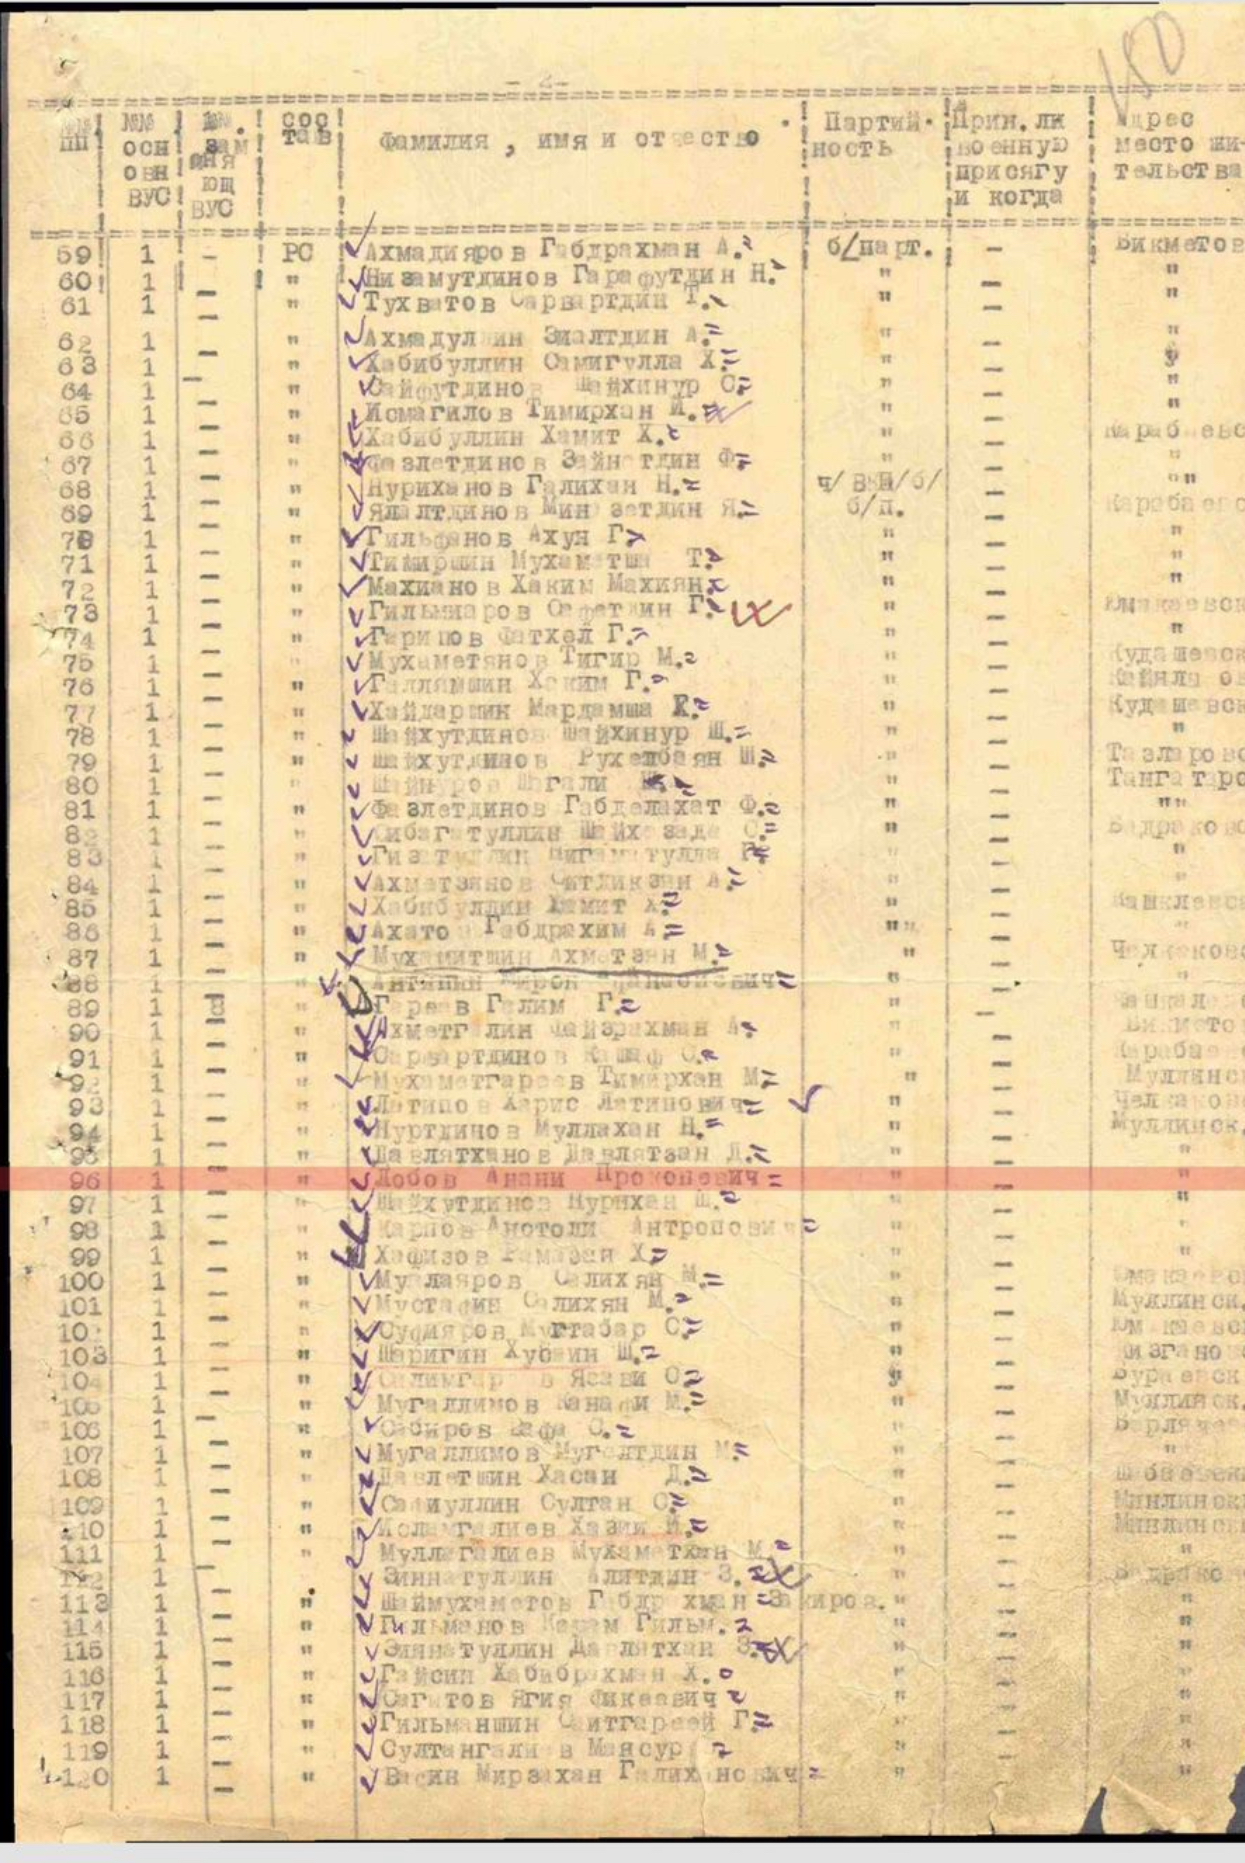 150
- 2 -
№№ ПП | №№ осн овн ВУС | зам еня ющ ВУС | сос тав | Фамилия, имя и отчество | Партий- ность | Прин. ли военную присягу и когда | Адрес место жи- тельства
59 1 - РС Ахмадияров Габдрахман А. б/парт. - Бикметов
60 1 - " Низамутдинов Гарафутдин Н. " - "
61 1 - " Тухватов Сарвартдин Т. " - "
62 1 - " Ахмадуллин Зиалтдин А. " - "
63 1 - " Хабибуллин Самигулла Х. " -
64 1 - " Сайфутдинов Шайхинур С. " - "
65 1 - " Исмагилов Тимирхан И. " - "
66 1 - " Хабибуллин Хамит Х. " - Карабаевс
67 1 - " Фазлетдинов Зайнетдин Ф. " - "
68 1 - " Нуриханов Галихан Н. - "
69 1 - " Ялалтдинов Миназетдин Я. б/п. - Карабаевс
70 1 - " Гильфанов Ахун Г. " - "
71 1 - " Тимиршин Мухаметша Т. " - "
72 1 - " Махианов Хаким Махиян " - "
73 1 - " Гильмиаров Сафетдин Г. " -
74 1 - " Гарипов Фатхел Г. " - "
75 1 - " Мухаметянов Тигир М. " - Кудашевск
76 1 - " Галлямшин Хаким Г. " -
77 1 - " Хайдаршик Мардамша Х. " - Кудашевск
78 1 - " Шайхутдинов Шайхинур Ш. " - "
79 1 - " Шайхутдинов Ш. " - Тазларовс
80 1 - " Шайнуров Шагали " - Тангатаро
81 1 - " Фазлетдинов Габделахат Ф. " - ""
82 1 - " Сибагатуллин Шайхезаде С. " - Бадраковс
83 1 - " Гизатуллин " - "
84 1 - " Ахметзянов А. " - "
85 1 - " Хабибуллин Хамит Х. " -
86 1 - " Ахатов Габдрахим А. "" - "
87 1 - " Мухамитшин Ахметзян М. " - Челкаково
88 1 - " Антипин Мирон " - "
89 1 8 " Гареев Галим Г. " -
90 1 - " Ахметгалин Файзрахман А. " - Бикметов
91 1 - " Сарвартдинов Кашаф С. " - Караба
92 1 - " Мухаметгареев Тимирхан М. " - Муллинск
93 1 - " Латипов Харис Латипович " - Челкаков
94 1 - " Нуртдинов Муллахан Н. " - Муллинск.
95 1 - " Давлятханов Давлятзан Д. " - "
96 1 - " Лобов Анани Прокопович " - "
97 1 - " Шайхутдинов Нурихан Ш. " - "
98 1 - " Карпов Анотоли Антропович " -
99 1 - " Хафизов Рамазан Х. " - "
100 1 - " Муллаяров Салихян М. " -
101 1 - " Мустафин Салихян М. " - Муллинск.
102 1 - " Суфияров Мугтабар С. " -
103 1 - " Шаригин Хусаин Ш. " -
104 1 - " Салимгареев Ясави С. -
105 1 - " Мугаллимов Канафи М. " - Муллинск.
106 1 - " Сабиров Вафа С. " -
107 1 - " Мугаллимов Мугалтдин М. " - "
108 1 - " Давлетшин Хасан Д. " -
109 1 - " Садиуллин Султан С. " - Минлинск
110 1 - " Исламгалиев Хазии И. " - Минлинск
111 1 - " Муллагалиев Мухаметхан М. " - "
112 1 - Зиннатуллин Алитдин З. " - Бадраков
113 1 - " Шаймухаметов Габдрахман Закиров. " - "
114 1 - " Гильманов Кадам Гильм. " - "
115 1 - " Зиннатуллин Давлятхан З. " - "
116 1 - " Гайсин Хабибрахман Х. " - "
117 1 - " Сагитов Ягия Фикеавич " - "
118 1 - " Гильманшин Саитгареей Г. " - "
119 1 - " Султангалиев Мансур " - "
120 1 - " Васин Мирзахан Галиханович " - "